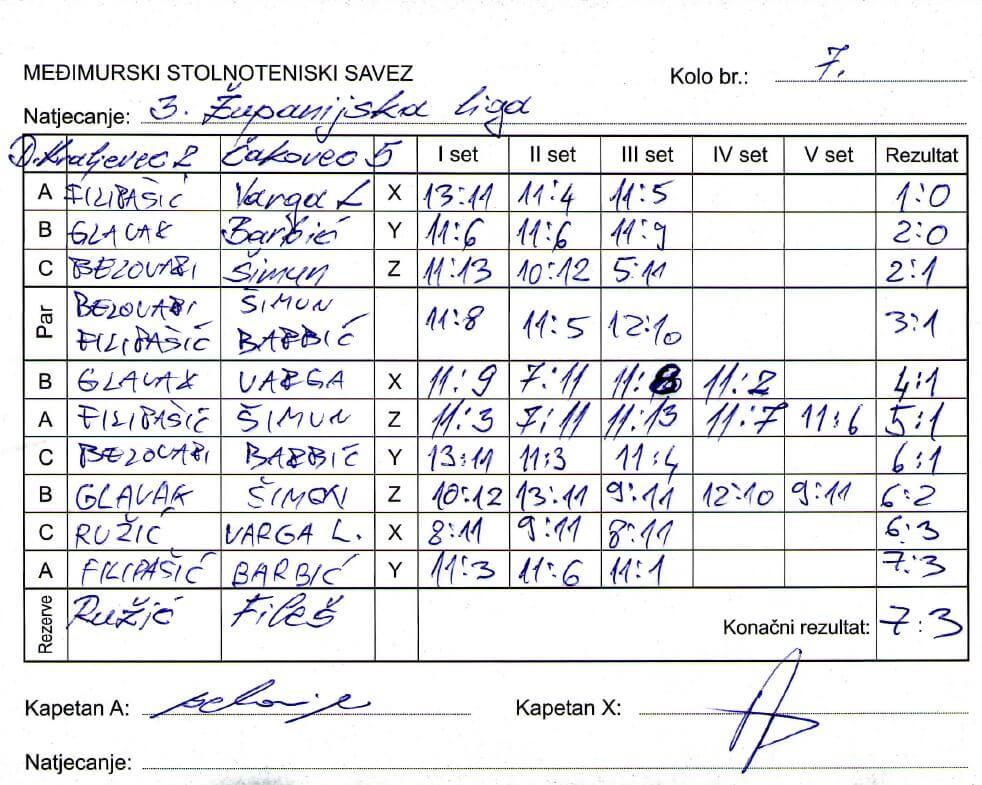 MEĐIMURSKI STOLNOTENISKI SAVEZ
Kolo br.: 7.
Natjecanje: 3. Županijska liga
D. Kraljevec 2 Čakovec 5 I set II set III set IV set V set Rezultat
A FILIPAŠIĆ Varga L X 13:11 11:4 11:5 1:0
B GLAVAK Barbić Y 11:6 11:6 11:9 2:0
C BEZOVARI Šimun Z 11:13 10:12 5:11 2:1
Par BEZOVARI ŠIMUN 11:8 11:5 12:10 3:1
FILIPAŠIĆ BARBIĆ
B GLAVAK VARGA X 11:9 7:11 11:8 11:2 4:1
A FILIPAŠIĆ ŠIMUN Z 11:3 7:11 11:13 11:7 11:6 5:1
C BEZOVARI BARBIĆ Y 13:11 11:3 11:4 6:1
B GLAVAK ŠIMUN Z 10:12 13:11 9:11 12:10 9:11 6:2
C RUŽIĆ VARGA L. X 8:11 9:11 8:11 6:3
A FILIPAŠIĆ BARBIĆ Y 11:3 11:6 11:1 7:3
Rezerve Ružić Fileš Konačni rezultat: 7:3
Kapetan A: Kapetan X:
Natjecanje: